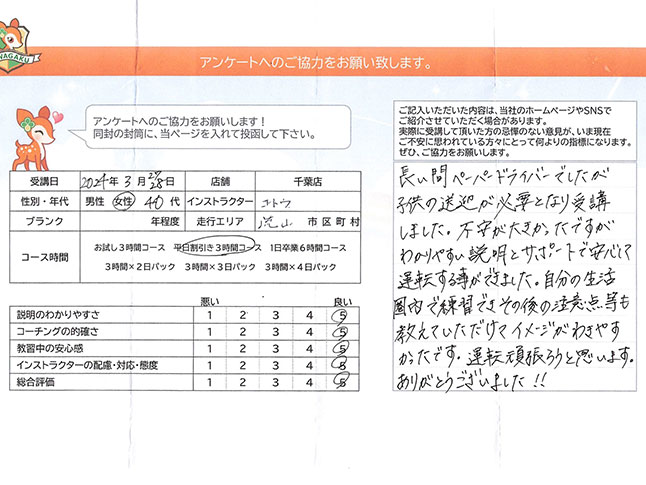 WAGAKU
アンケートへのご協力をお願い致します。
アンケートへのご協力をお願いします！
同封の封筒に、当ページを入れて投函して下さい。
ご記入いただいた内容は、当社のホームページやSNSで
ご紹介させていただく場合があります。
実際に受講して頂いた方の忌憚のない意見が、いま現在
ご不安に思われている方々にとって何よりの指標になります。
ぜひ、ご協力をお願いします。
受講日 2024年 3月 27/28日 店舗 千葉店
性別・年代 男性 女性 40代 インストラクター ゴトウ
ブランク 年程度 走行エリア 流山 市区町村
コース時間 お試し3時間コース 平日割引き3時間コース 1日卒業6時間コース
3時間×2日パック 3時間×3日パック 3時間×4日パック
悪い 良い
説明のわかりやすさ 1 2 3 4 5
コーチングの的確さ 1 2 3 4 5
教習中の安心感 1 2 3 4 5
インストラクターの配慮・対応・態度 1 2 3 4 5
総合評価 1 2 3 4 5
長い間ペーパードライバーでしたが
子供の送迎が必要となり受講
しました。不安が大きかったですが
わかりやすい説明とサポートで安心して
運転する事ができました。自分の生活
圏内で練習できその後の注意点等も
教えていただけてイメージがわきやす
かったです。運転頑張ろうと思います。
ありがとうございました!!